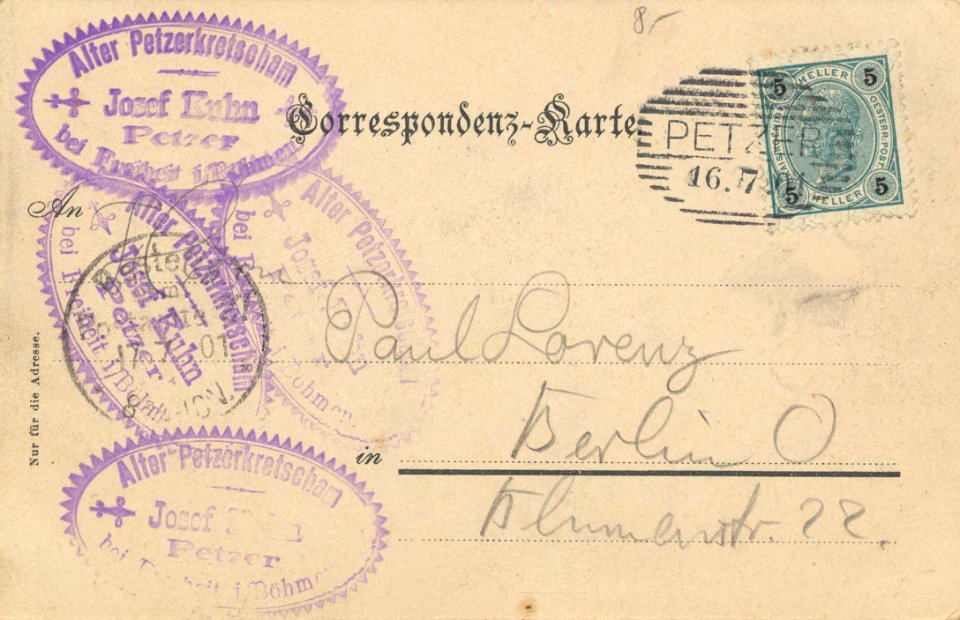 8,-
Alter Petzerkretscham
Josef Kuhn
Petzer
bei Freiheit i/Böhmen
Correspondenz-Karte
PETZER
16.7
5 HELLER 5
OESTERR. POST.
5 HELLER 5
An
Alter Petzerkretscham
Josef Kuhn
Petzer
bei Freiheit i/Böhmen
Alter Petzerkretscham
Josef Kuhn
bei
Böhmen
17.7.01
8
Paul Lorenz
in Berlin O
Blumenstr. 22.
Nur für die Adresse.
Alter Petzerkretscham
Josef Kuhn
Petzer
bei Freiheit i/Böhmen